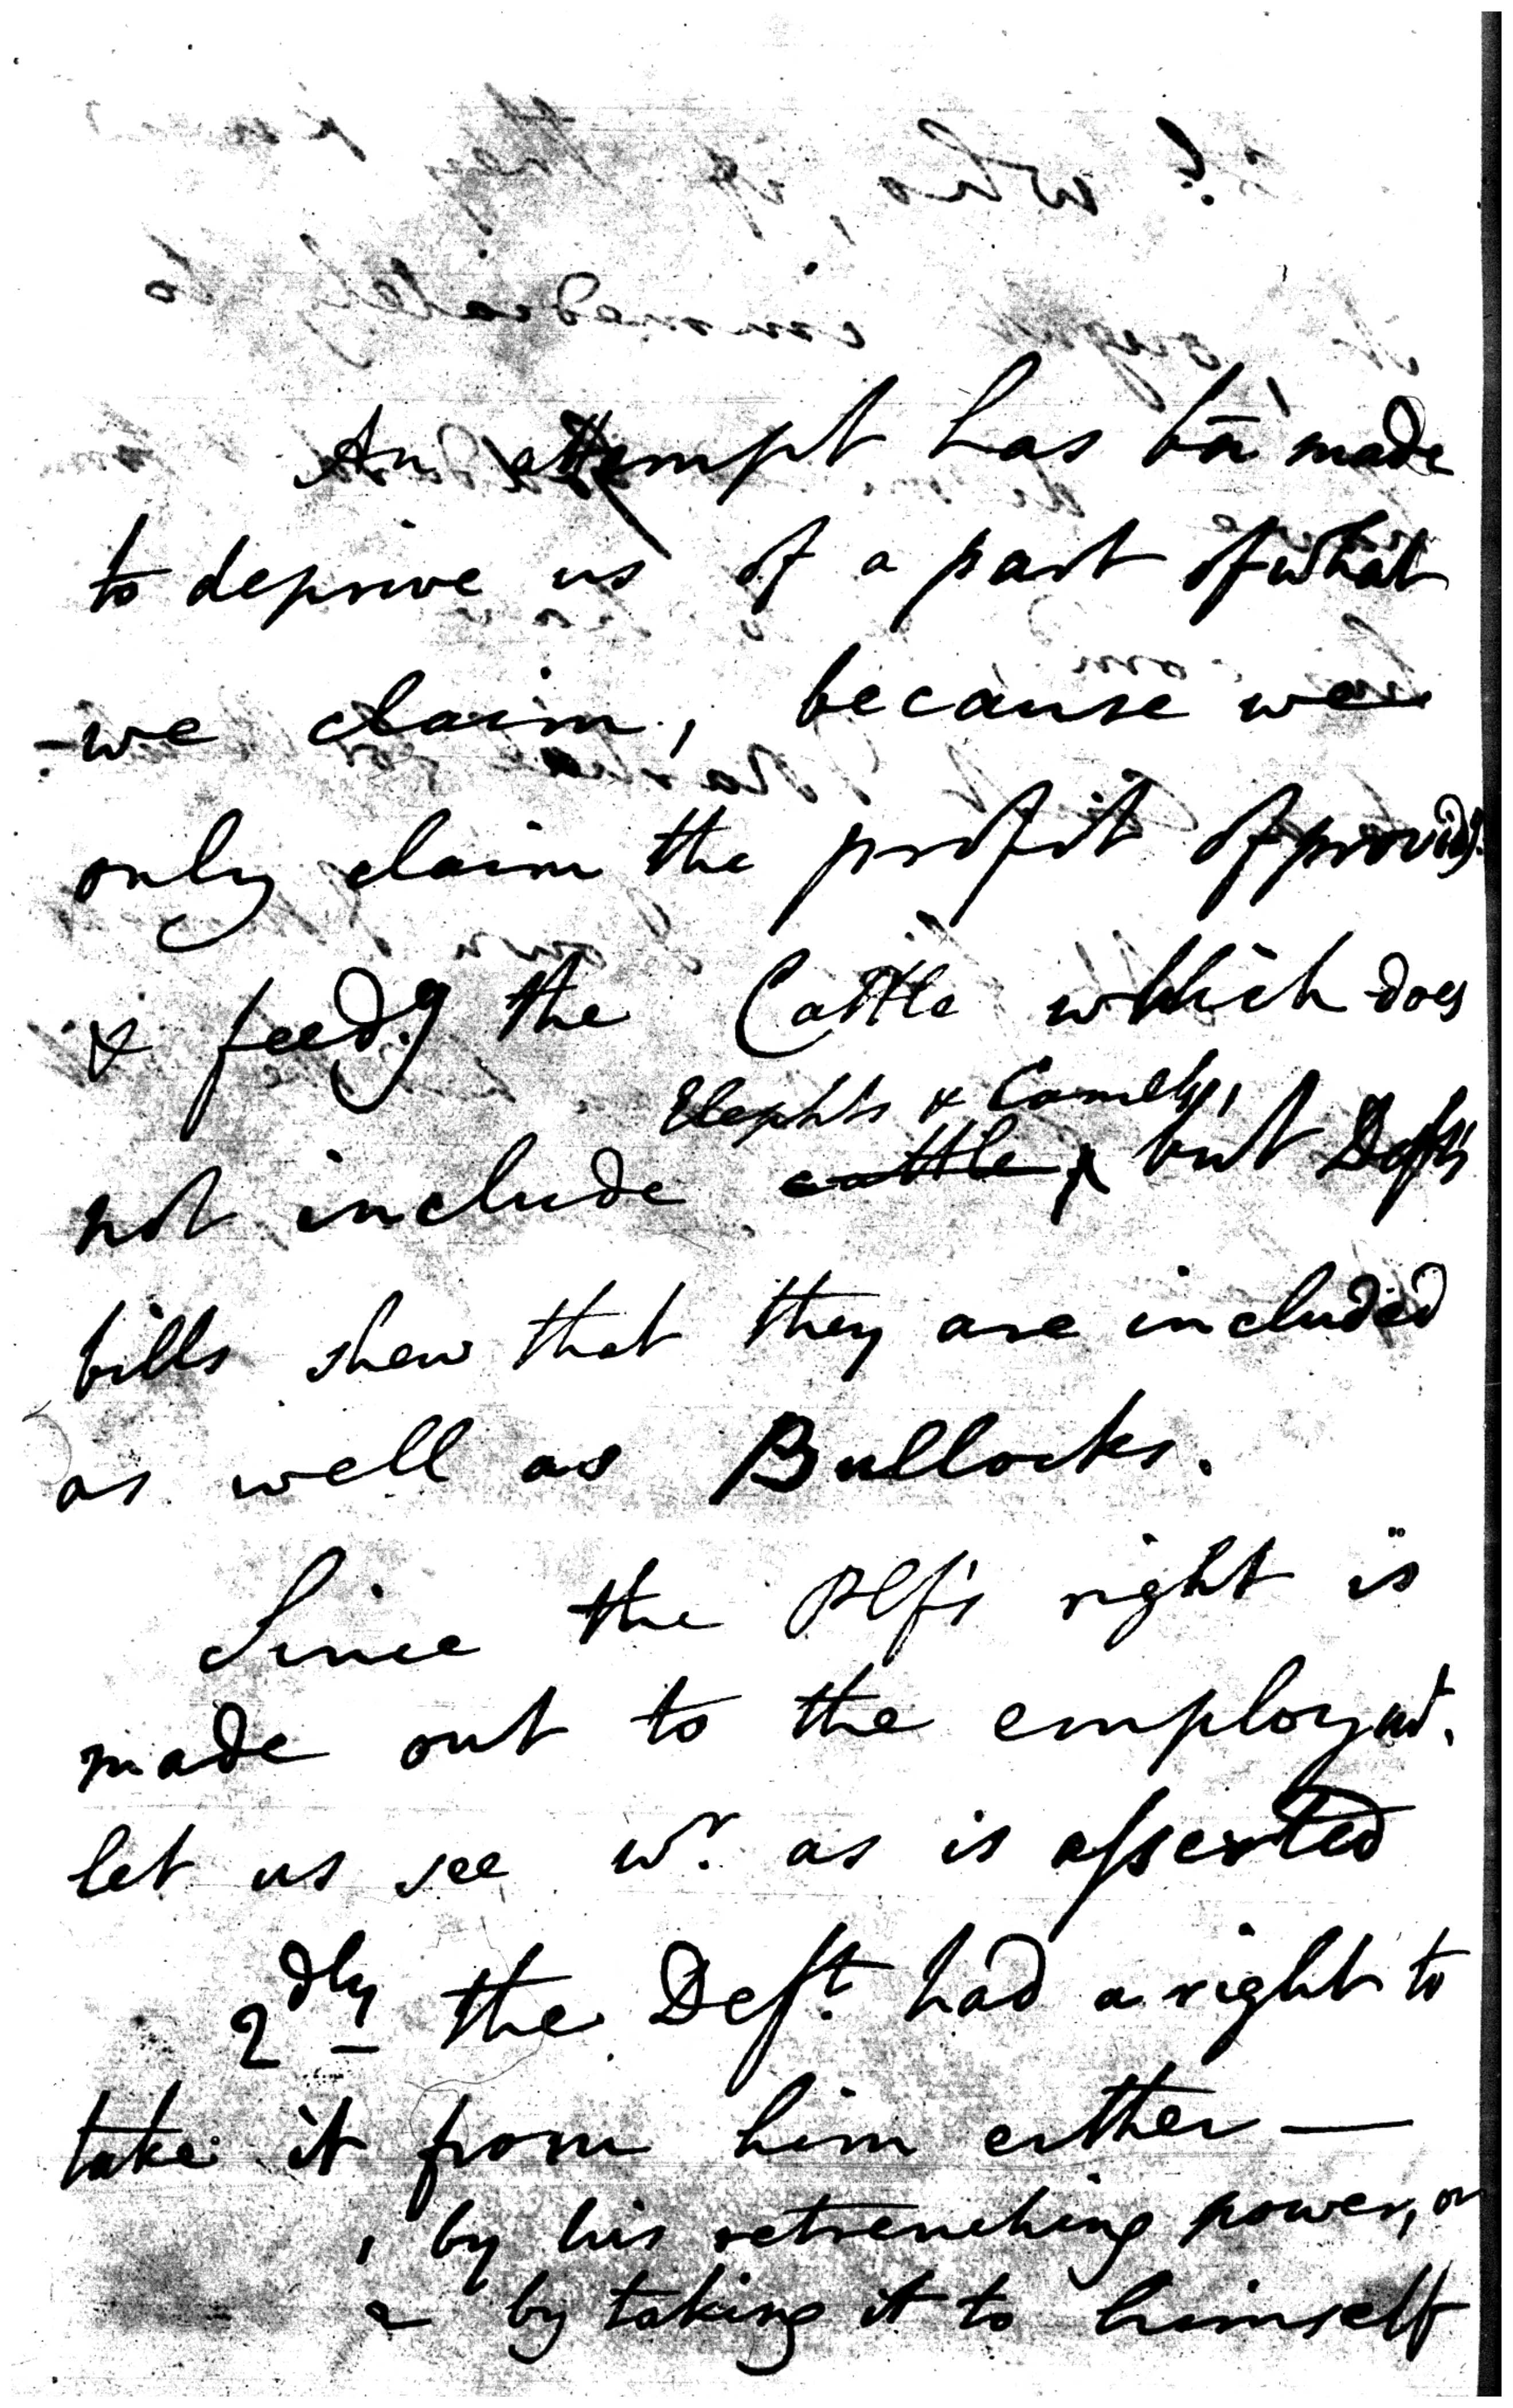 An attempt has bēn made
to deprive us of a part of what
we claim, because we
only claim the profit of providg.
& feedg the Cattle which does
Elephts & Camels,
not include cattle, but Defts
bills shew that they are included
as well as Bullocks.
Since the Plf's right is
made out to the employmt.
let us see wr. as is asserted
2dly the Deft. had a right to
take it from him either —
1 by his retrenching power, or
2 by taking it to himself